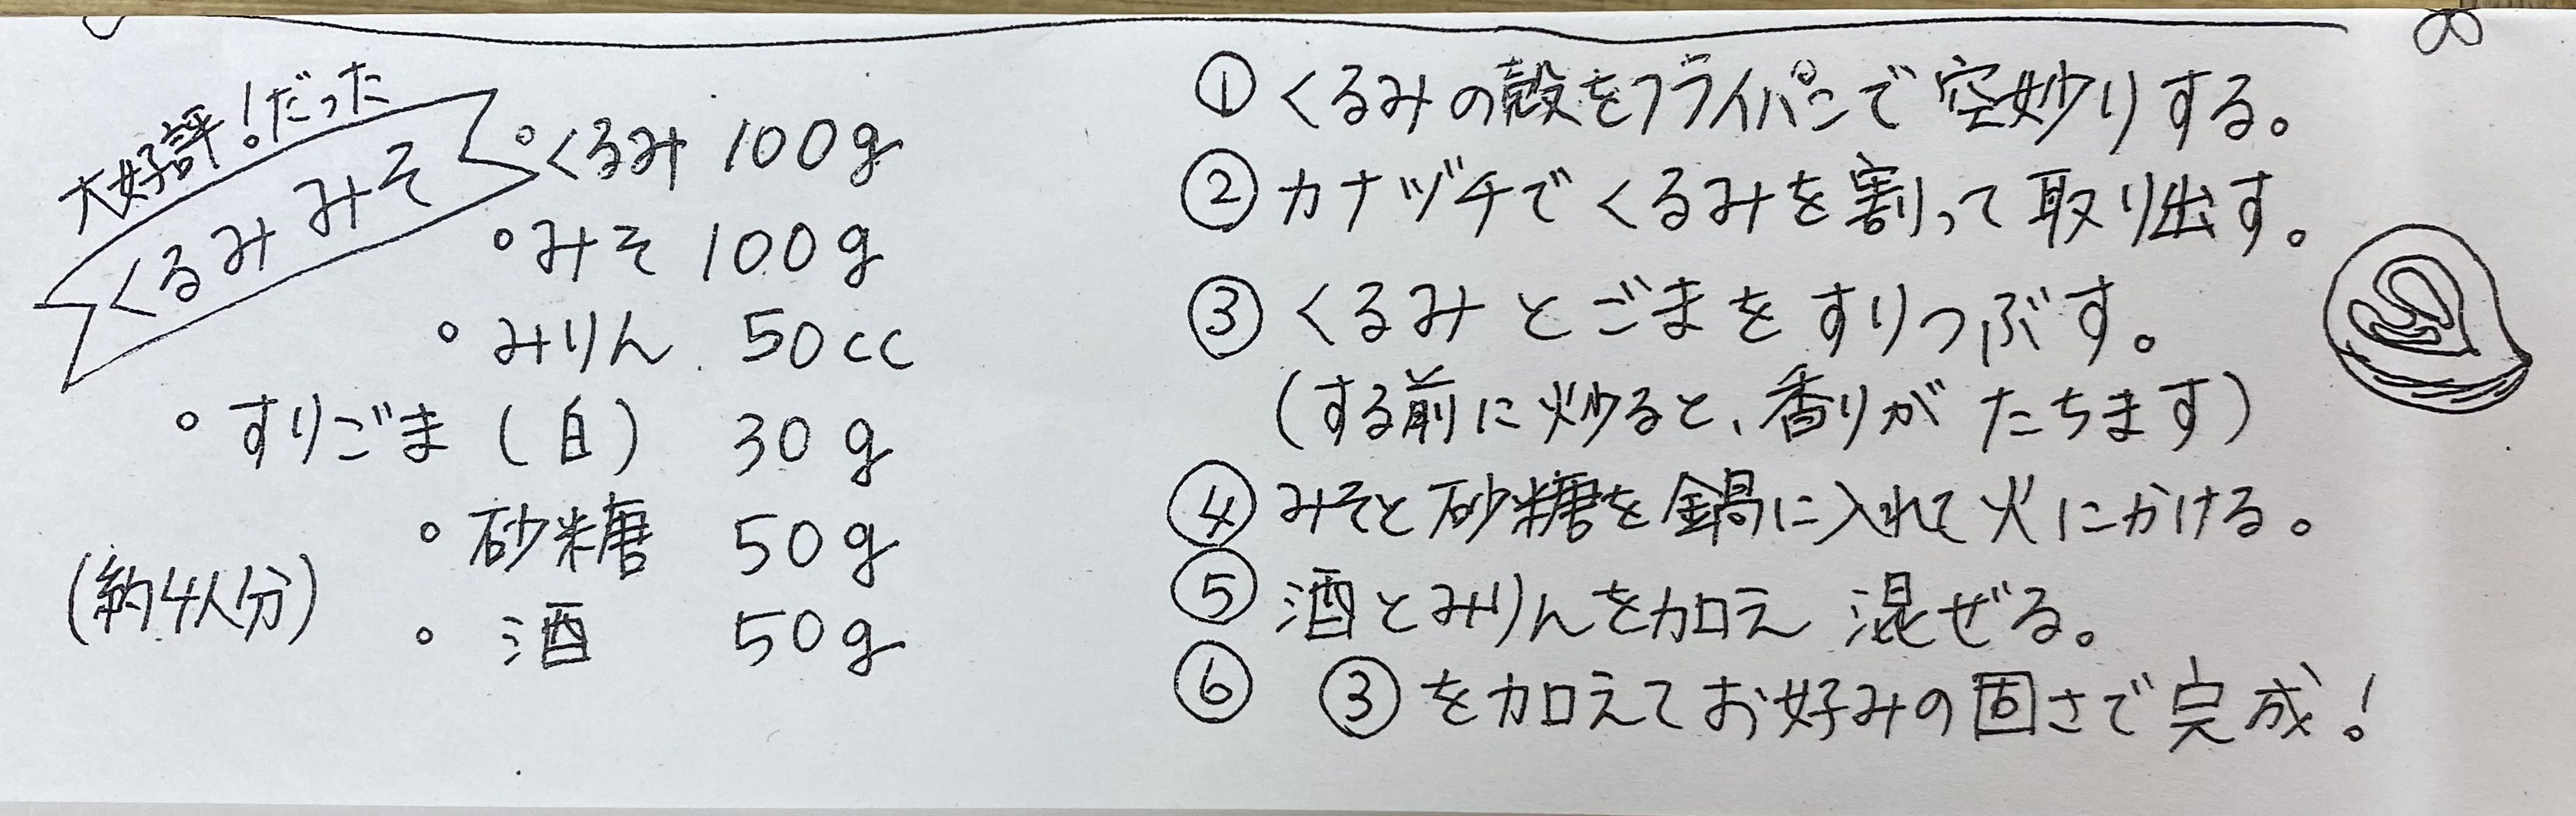 大好評!だった
くるみみそ
。くるみ 100g
。みそ 100g
。みりん 50cc
。すりごま(白) 30g
。砂糖 50g
。酒 50g
(約4人分)
① くるみの殻をフライパンで空炒りする。
② カナヅチでくるみを割って取り出す。
③ くるみとごまをすりつぶす。
(する前に炒ると、香りがたちます)
④ みそと砂糖を鍋に入れて火にかける。
⑤ 酒とみりんを加え 混ぜる。
⑥ ③を加えてお好みの固さで完成!